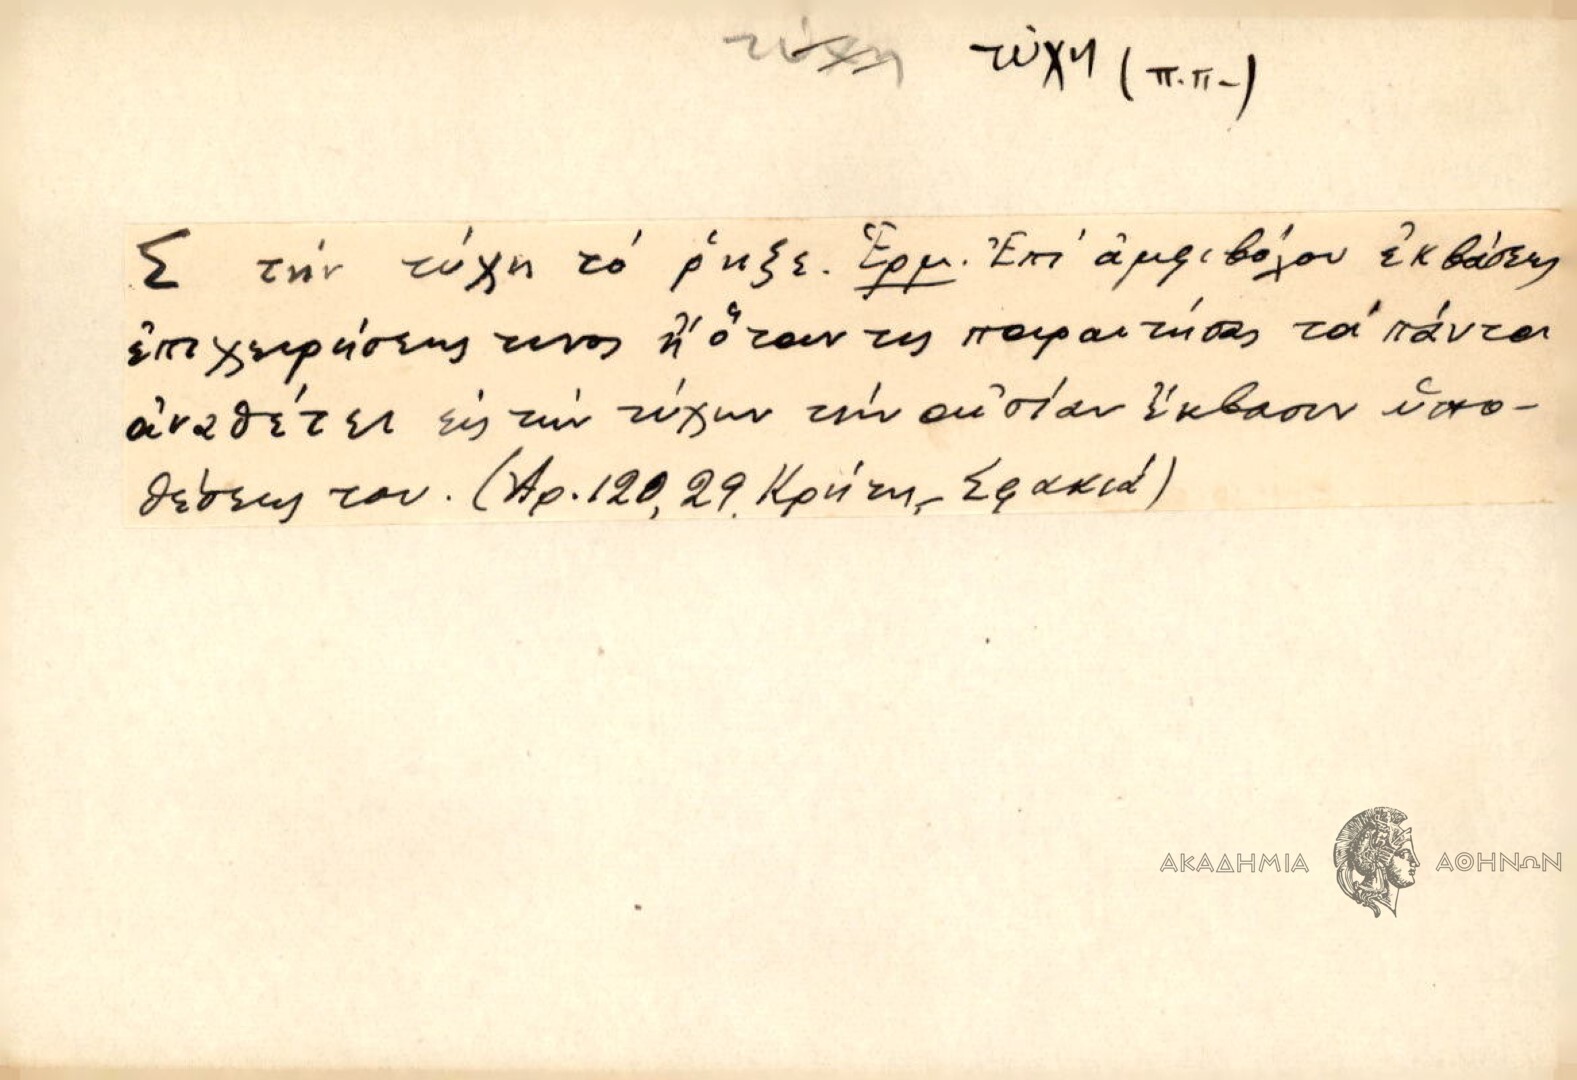 τύχη τύχη (π.π-)
Σ τήν τύχη τό ρηξε. Ἑρμ. Ἐπί ἀμφιβόλου ἐκβάσεως
ἐπιχειρήσεως τινος ἤ ὅταν τις παραιτήσας τά πάντα
ἀναθέτει εἰς τήν τύχην τήν αἰσίαν ἔκβασιν ὑπο-
θέσεως του. (Αρ. 120, 29. Κρήτης, Σφακιά)
ΑΚΑΔΗΜΙΑ ΑΘΗΝΩΝ